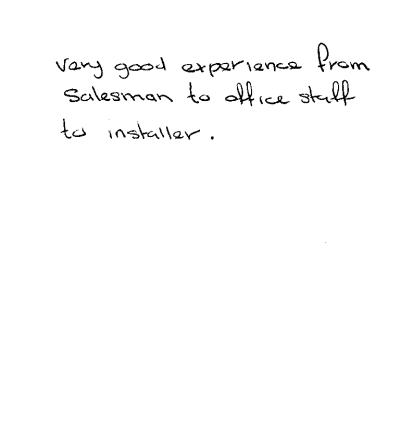 Very good experience from
Salesman to office staff
to installer.